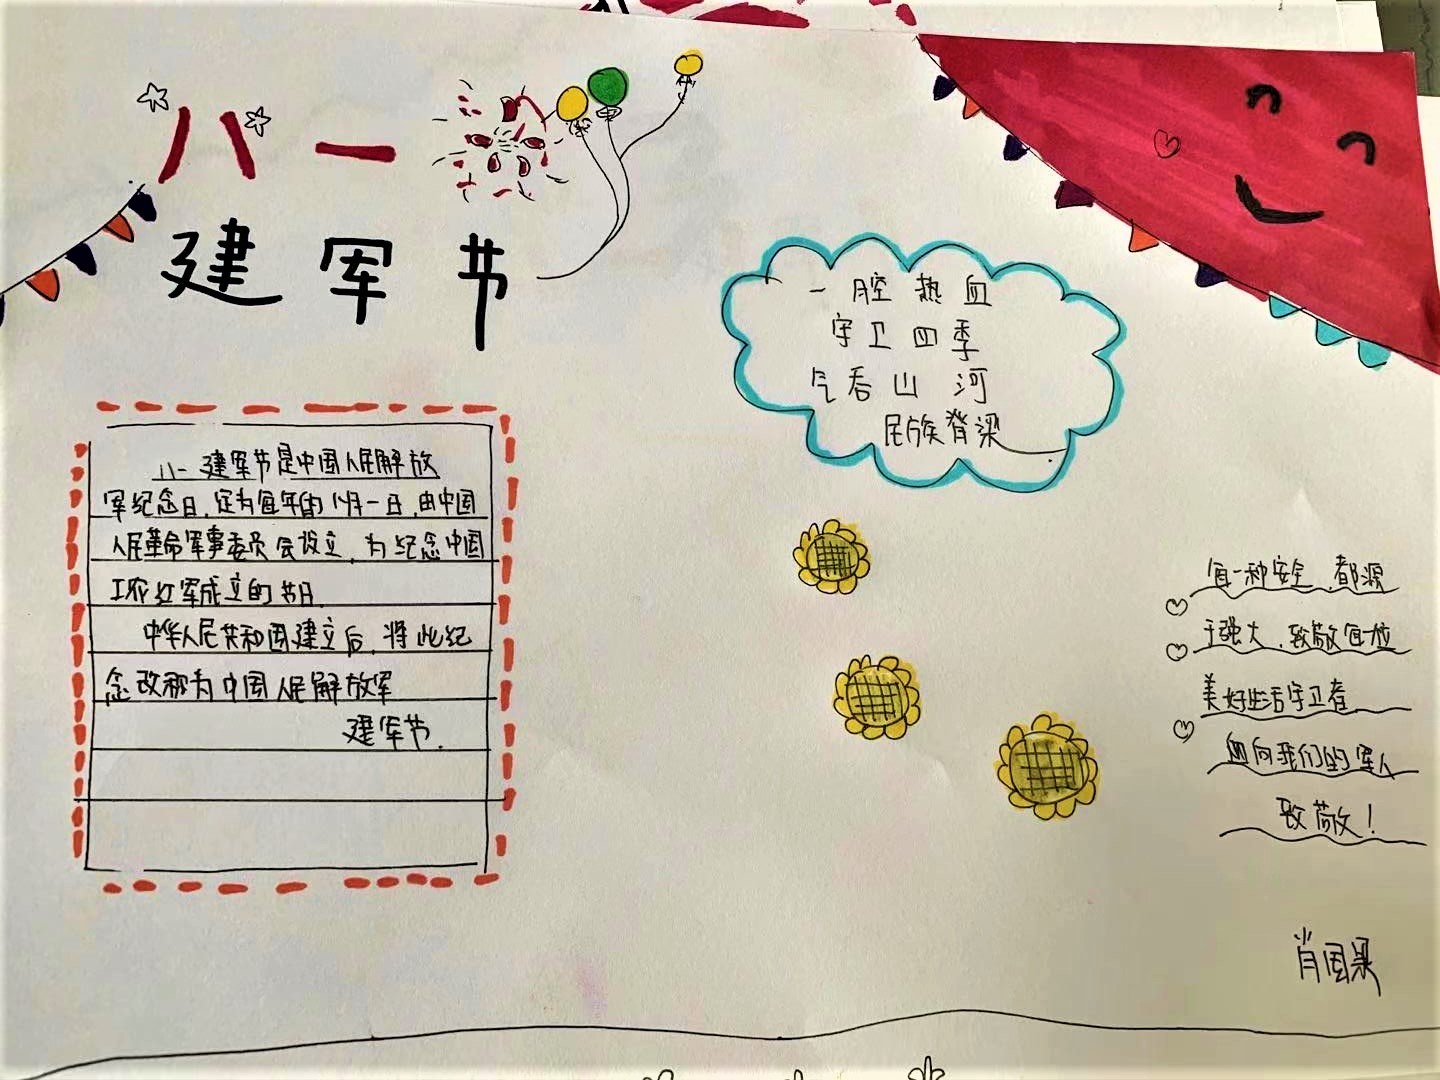 八一
建军节
八一建军节是中国人民解放
军纪念日,定为每年的八月一日,由中国
人民革命军事委员会设立,为纪念中国
工农红军成立的节日
中华人民共和国建立后,将此纪
念改称为中国人民解放军
建军节.
一腔热血
守卫四季
气吞山河
民族脊梁
每一种安全,都源
于强大,致敬每一位
美好生活守卫者
向我们的军人
致敬!
肖国梁